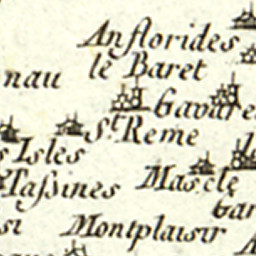 Anflorides
le Baret
nau
Gavare
St Reme
s Isles
Tassines
Mascle
Gar
si
Montplaisir